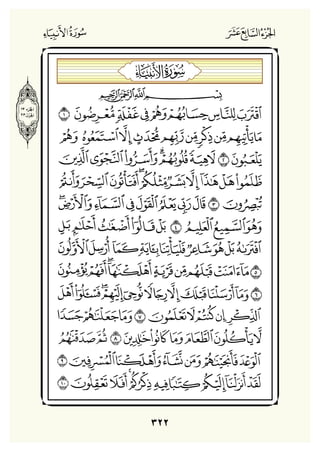 الجُزْءُ السَّابِعَ عَشَرَ
سُورَةُ الأَنبِيَاءِ
سُورَةُ الأَنبِيَاءِ
بِسْمِ ٱللَّهِ ٱلرَّحْمَٰنِ ٱلرَّحِيمِ
ٱقْتَرَبَ لِلنَّاسِ حِسَابُهُمْ وَهُمْ فِى غَفْلَةٍ مُّعْرِضُونَ ١
مَا يَأْتِيهِم مِّن ذِكْرٍ مِّن رَّبِّهِم مُّحْدَثٍ إِلَّا ٱسْتَمَعُوهُ وَهُمْ
يَلْعَبُونَ ٢ لَاهِيَةً قُلُوبُهُمْ ۗ وَأَسَرُّوا۟ ٱلنَّجْوَى ٱلَّذِينَ
ظَلَمُوا۟ هَلْ هَٰذَآ إِلَّا بَشَرٌ مِّثْلُكُمْ ۖ أَفَتَأْتُونَ ٱلسِّحْرَ وَأَنتُمْ
تُبْصِرُونَ ٣ قَالَ رَبِّى يَعْلَمُ ٱلْقَوْلَ فِى ٱلسَّمَآءِ وَٱلْأَرْضِ ۖ
وَهُوَ ٱلسَّمِيعُ ٱلْعَلِيمُ ٤ بَلْ قَالُوٓا۟ أَضْغَٰثُ أَحْلَٰمٍۭ بَلِ
ٱفْتَرَىٰهُ بَلْ هُوَ شَاعِرٌ فَلْيَأْتِنَا بِـَٔايَةٍ كَمَآ أُرْسِلَ ٱلْأَوَّلُونَ
٥ مَآ ءَامَنَتْ قَبْلَهُم مِّن قَرْيَةٍ أَهْلَكْنَٰهَآ ۖ أَفَهُمْ يُؤْمِنُونَ
٦ وَمَآ أَرْسَلْنَا قَبْلَكَ إِلَّا رِجَالًا نُّوحِىٓ إِلَيْهِمْ ۖ فَسْـَٔلُوٓا۟ أَهْلَ
ٱلذِّكْرِ إِن كُنتُمْ لَا تَعْلَمُونَ ٧ وَمَا جَعَلْنَٰهُمْ جَسَدًا
لَّا يَأْكُلُونَ ٱلطَّعَامَ وَمَا كَانُوا۟ خَٰلِدِينَ ٨ ثُمَّ صَدَقْنَٰهُمُ
ٱلْوَعْدَ فَأَنجَيْنَٰهُمْ وَمَن نَّشَآءُ وَأَهْلَكْنَا ٱلْمُسْرِفِينَ ٩
لَقَدْ أَنزَلْنَآ إِلَيْكُمْ كِتَٰبًا فِيهِ ذِكْرُكُمْ ۖ أَفَلَا تَعْقِلُونَ ١٠
٣٢٢